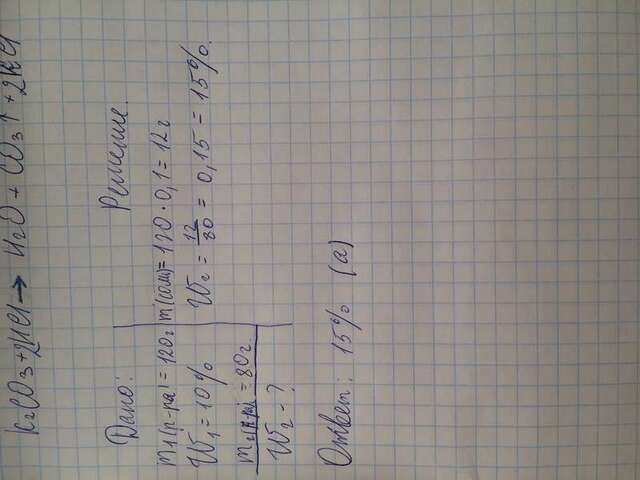 K₂CO₃+2HCl → H₂O + CO₃↑ +2KCl
Дано:
m₁(р-ра)=120г
W₁=10%
m₂(р-ра)=80г.
W₂-?
Решение.
m(соли)=120·0,1=12г
W₂ = 12/80 = 0,15 = 15%.
Ответ: 15% (а)